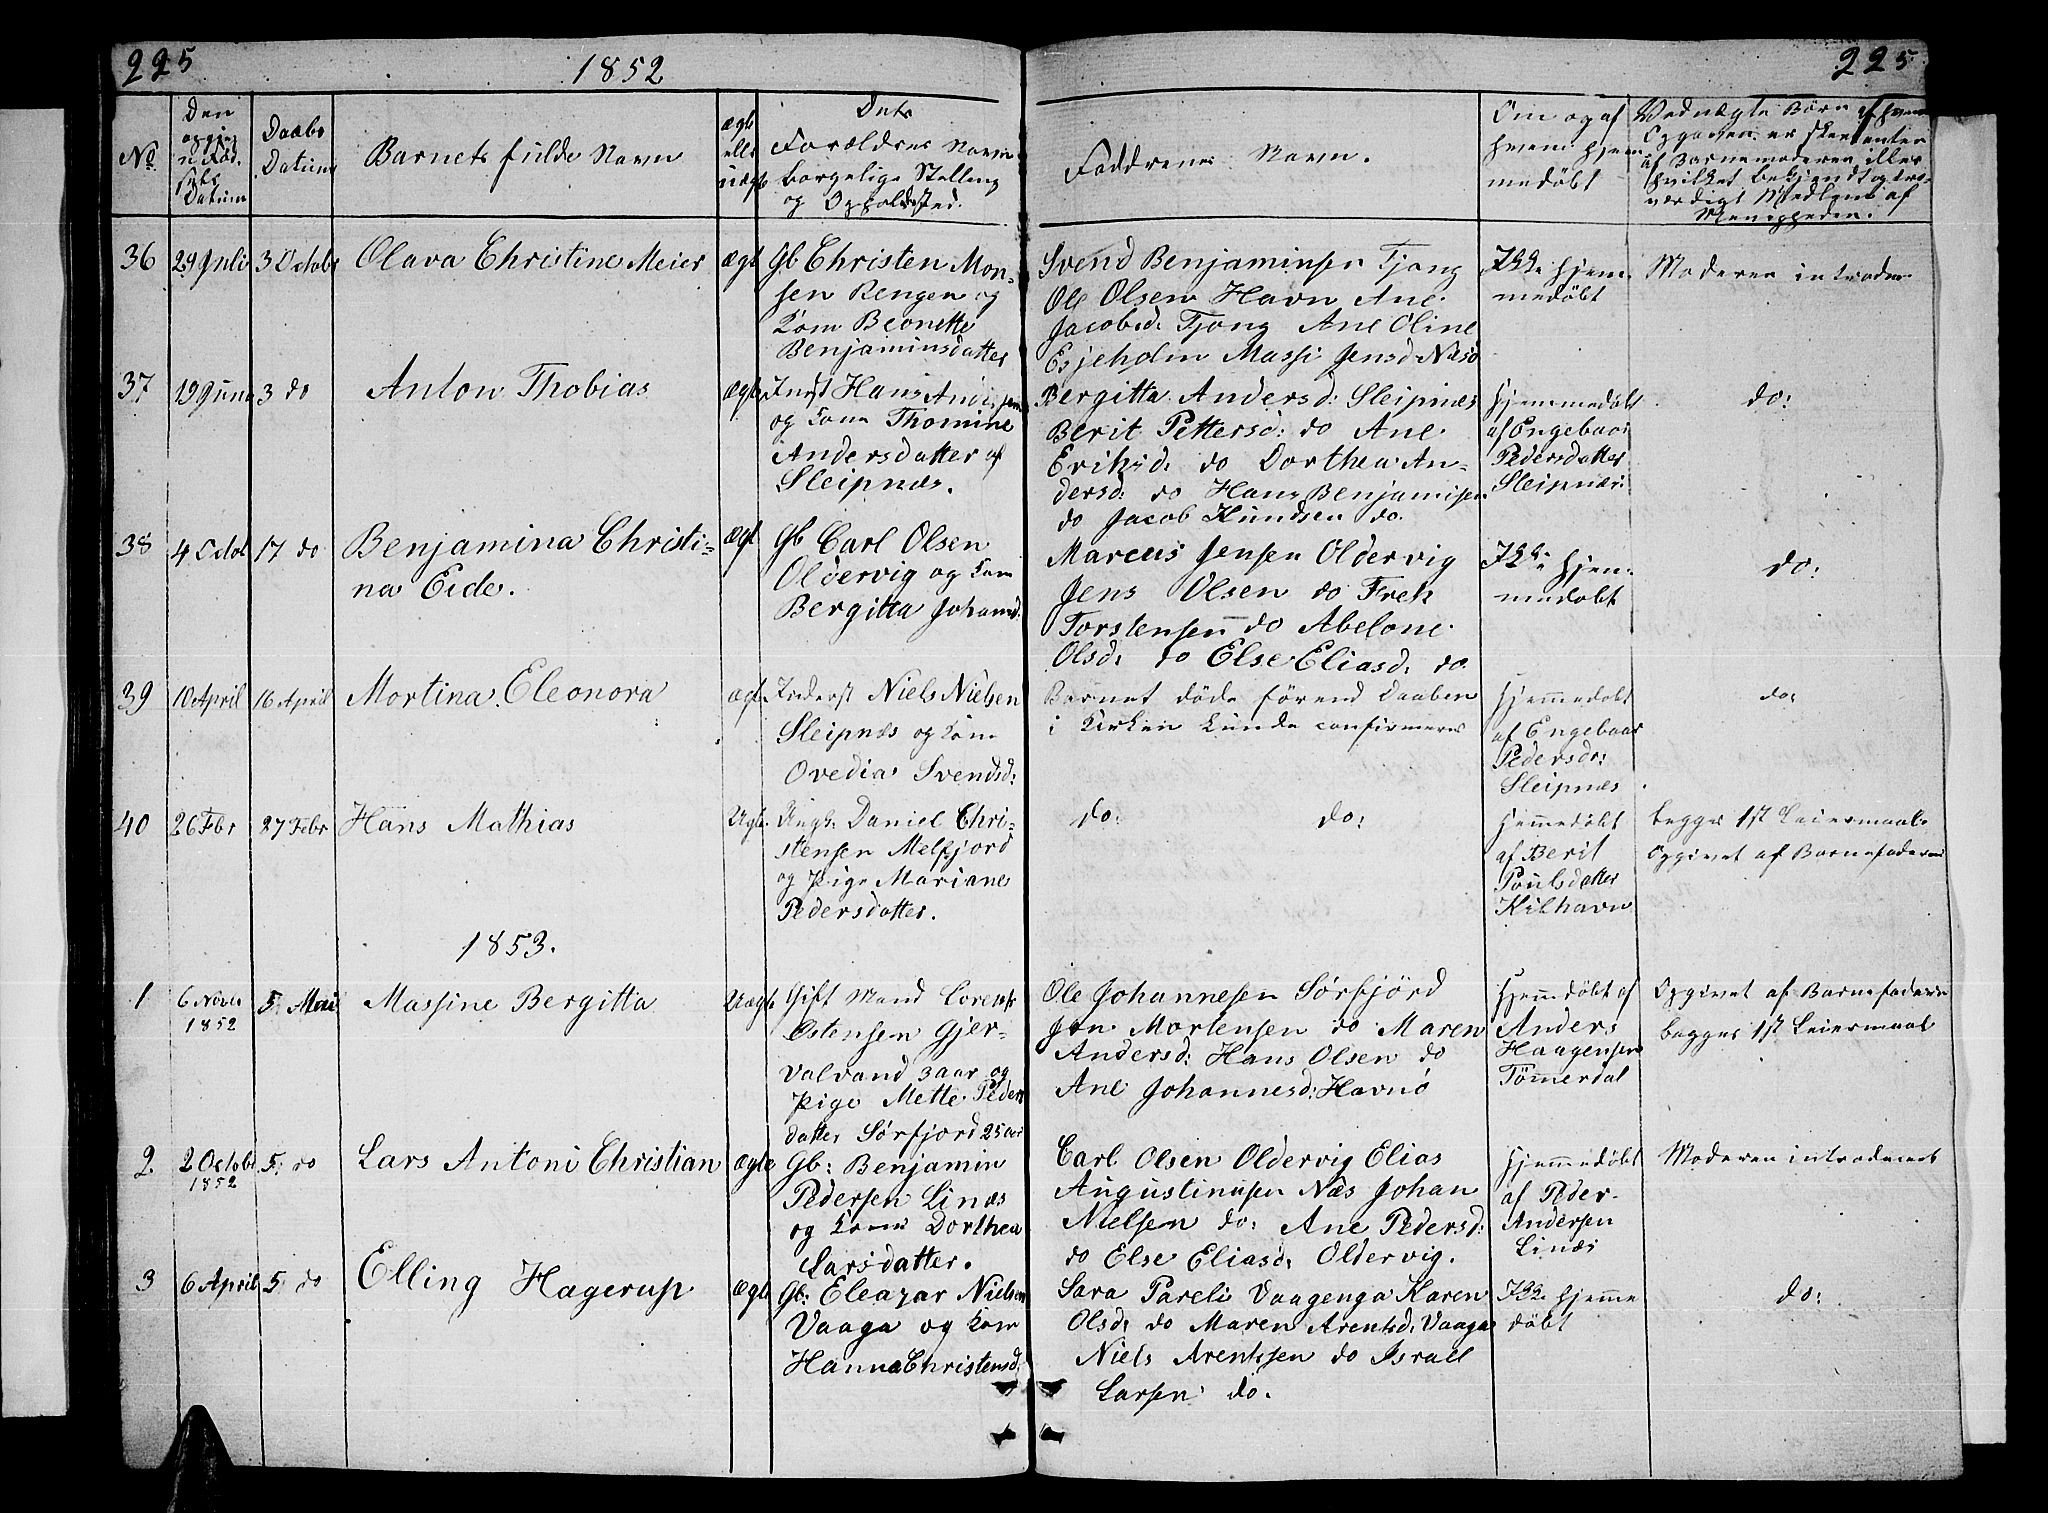 225
1852
225
No
Den
opgiv
n Fød
sels
Datum
Daabs
Datum
Barnets fulde Navn
ægte
elle
uægte
Dets
Forældres Navn
borgelige Stelling
og Opholdsted.
Faddrenes Navn.
Om og af
hvem hjem
medöbt
Vednægte Börn af hvem
Opgaven er skee enten
af Barnemoderen eller
hvilket bekjendt og tro-
værdigt Medlem af
Menigheden.
36
29 Juli
3 Octobr
Olava Christine Meier
ægt
Gb Christen Mon-
sen Rengen og
Kom Beonette
Benjaminsdatter
Svend Benjaminsen Tjong
Ole Olsen Havn Ane
Jacobsd: Tjong Ane Oline
Esjeholm Massi Jensd Næsö
Ikke hjem
medöbt
Moderen introdu
37
19 Juni
3 do
Anton Thobias
ægt
Indst Hans Andersen
og Kone Thomine
Andersdatter af
Sleipnæs.
Bergitta Andersd: Sleipnæs
Berit Pettersd: do Ane
Eriksd: do Dorthea An-
dersd: do Hans Benjaminsen
do Jacob Knudsen do.
hjemmedöbt
af Engebaar
Pedersdatter
Sleipnæs:
do:
38
4 Octob
17 do
Benjamina Christi-
na Eide.
ægt
Gb Carl Olsen
Oldervig og Kone
Bergitta Johannd:
Marcus Jensen Oldervig
Jens Olsen do Fredr
Torstensen do Abelone
Olsd: do Else Eliasd: do
Ikke hjem-
medobt
do:
39
10 April
16 April
Mortina Eleonora
ægt
Inderst Niels Nielsen
Sleipnæs og Kone
Ovedia Svendsd:
Barnet döde förend Daaben
i Kirken kunde confirmeres
hjemmedobt
af Engebaar
Pedersdr:
Sleipnæs
do:
40
26 Febr
27 Febr
Hans Mathias
Uægt.
Ungk: Daniel Chri-
stensen Melfjord
og Pige Mariane
Pedersdatter.
do: do:
hjemmedöbt
af Berit
Poulsdatter
Kilhavn
begges 1st Leiermaal
Opgivet af Barnefaderen
1853.
1
6 Novbr
1852
5 Mai
Massine Bergitta
Uægt
Gift Mand Lorents
Ostensen Gjer-
valvand 3 aar og
Pige Mette Peders
datter Sörfjord 25 aar
Ole Johannesen Sörfjörd
Jon Mortensen do Maren
Andersd: Hans Olsen do
Ane Johannesd: Havnö
Hjemmdöbt af
Anders
Haagensen
Tömerdal
Opgivet af Barnefaderen
begges 1st Leiermaal
2.
2 Octobr
1852
5: do
Lars Antoni Christian
ægte
Gb: Benjamin
Pedersen Linæs
og Kone Dorthea
Larsdatter.
Carl Olsen Oldervig Elias
Augustinusen Næs Johan
Nielsen do: Ane Pedersd:
do Else Eliasd: Oldervig.
Hjemmedöbt
af Peder
Andersen
Linæs
Moderen introduceret
3
6 April
5: do
Elling Hagerup
ægt
Gb: Eleazar Nielsen
Vaaga og Kone
Hanna Christensd:
Sara Pareli Vaagenga Karen
Olsd: do Maren Arentsd: Vaaga
Niels Arentsen do Israel
Larsen do.
Ikke hjemme
döbt
do: